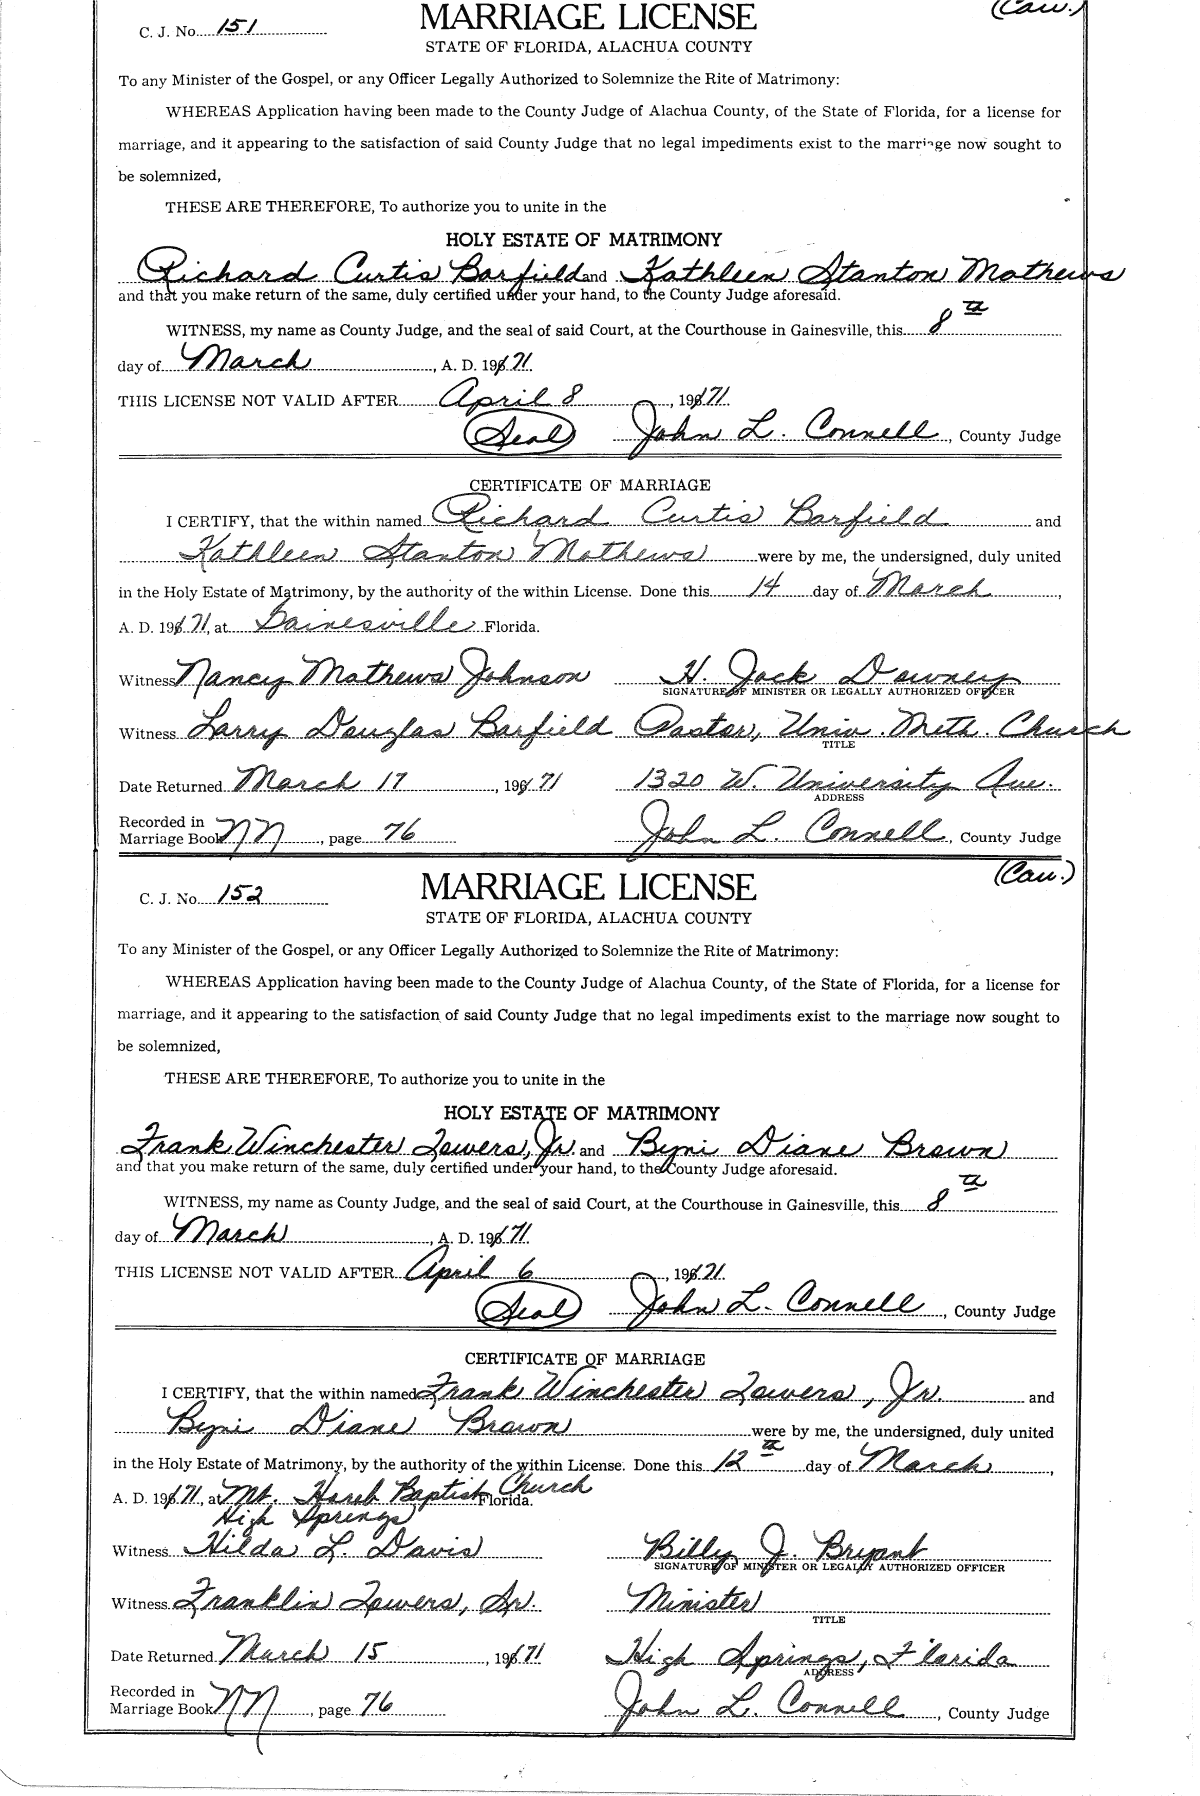 (Cau.)
C. J. No. 151
MARRIAGE LICENSE
STATE OF FLORIDA, ALACHUA COUNTY
To any Minister of the Gospel, or any Officer Legally Authorized to Solemnize the Rite of Matrimony:
WHEREAS Application having been made to the County Judge of Alachua County, of the State of Florida, for a license for
marriage, and it appearing to the satisfaction of said County Judge that no legal impediments exist to the marriage now sought to
be solemnized,
THESE ARE THEREFORE, To authorize you to unite in the
HOLY ESTATE OF MATRIMONY
Richard Curtis Barfield and Kathleen Stanton Mathews
and that you make return of the same, duly certified under your hand, to the County Judge aforesaid.
WITNESS, my name as County Judge, and the seal of said Court, at the Courthouse in Gainesville, this 8th
day of March, A. D. 1971.
THIS LICENSE NOT VALID AFTER April 8, 1971.
(Seal) John L. Connell, County Judge
CERTIFICATE OF MARRIAGE
I CERTIFY, that the within named Richard Curtis Barfield and
Kathleen Stanton Mathews were by me, the undersigned, duly united
in the Holy Estate of Matrimony, by the authority of the within License. Done this 14 day of March,
A. D. 1971, at Gainesville Florida.
Witness Nancy Mathews Johnson H. Jack Downey
SIGNATURE OF MINISTER OR LEGALLY AUTHORIZED OFFICER
Witness Larry Douglas Barfield Pastor, Univ. Meth. Church
TITLE
Date Returned March 17, 1971 1320 W. University Ave.
ADDRESS
Recorded in
Marriage Book NN, page 76 John L. Connell, County Judge
(Cau.)
C. J. No. 152
MARRIAGE LICENSE
STATE OF FLORIDA, ALACHUA COUNTY
To any Minister of the Gospel, or any Officer Legally Authorized to Solemnize the Rite of Matrimony:
WHEREAS Application having been made to the County Judge of Alachua County, of the State of Florida, for a license for
marriage, and it appearing to the satisfaction of said County Judge that no legal impediments exist to the marriage now sought to
be solemnized,
THESE ARE THEREFORE, To authorize you to unite in the
HOLY ESTATE OF MATRIMONY
Frank Winchester Towers, Jr. and Byni Diane Brown
and that you make return of the same, duly certified under your hand, to the County Judge aforesaid.
WITNESS, my name as County Judge, and the seal of said Court, at the Courthouse in Gainesville, this 8th
day of March, A. D. 1971.
THIS LICENSE NOT VALID AFTER April 6, 1971.
(Seal) John L. Connell, County Judge
CERTIFICATE OF MARRIAGE
I CERTIFY, that the within named Frank Winchester Towers, Jr. and
Byni Diane Brown were by me, the undersigned, duly united
in the Holy Estate of Matrimony, by the authority of the within License. Done this 12th day of March,
A. D. 1971, at Mt. Horeb Baptist Church Florida.
High Springs
Witness Hilda L. Davis Billy J. Bryant
SIGNATURE OF MINISTER OR LEGALLY AUTHORIZED OFFICER
Witness Franklin Towers, Sr. Minister
TITLE
Date Returned March 15, 1971 High Springs, Florida
ADDRESS
Recorded in
Marriage Book NN, page 76 John L. Connell, County Judge